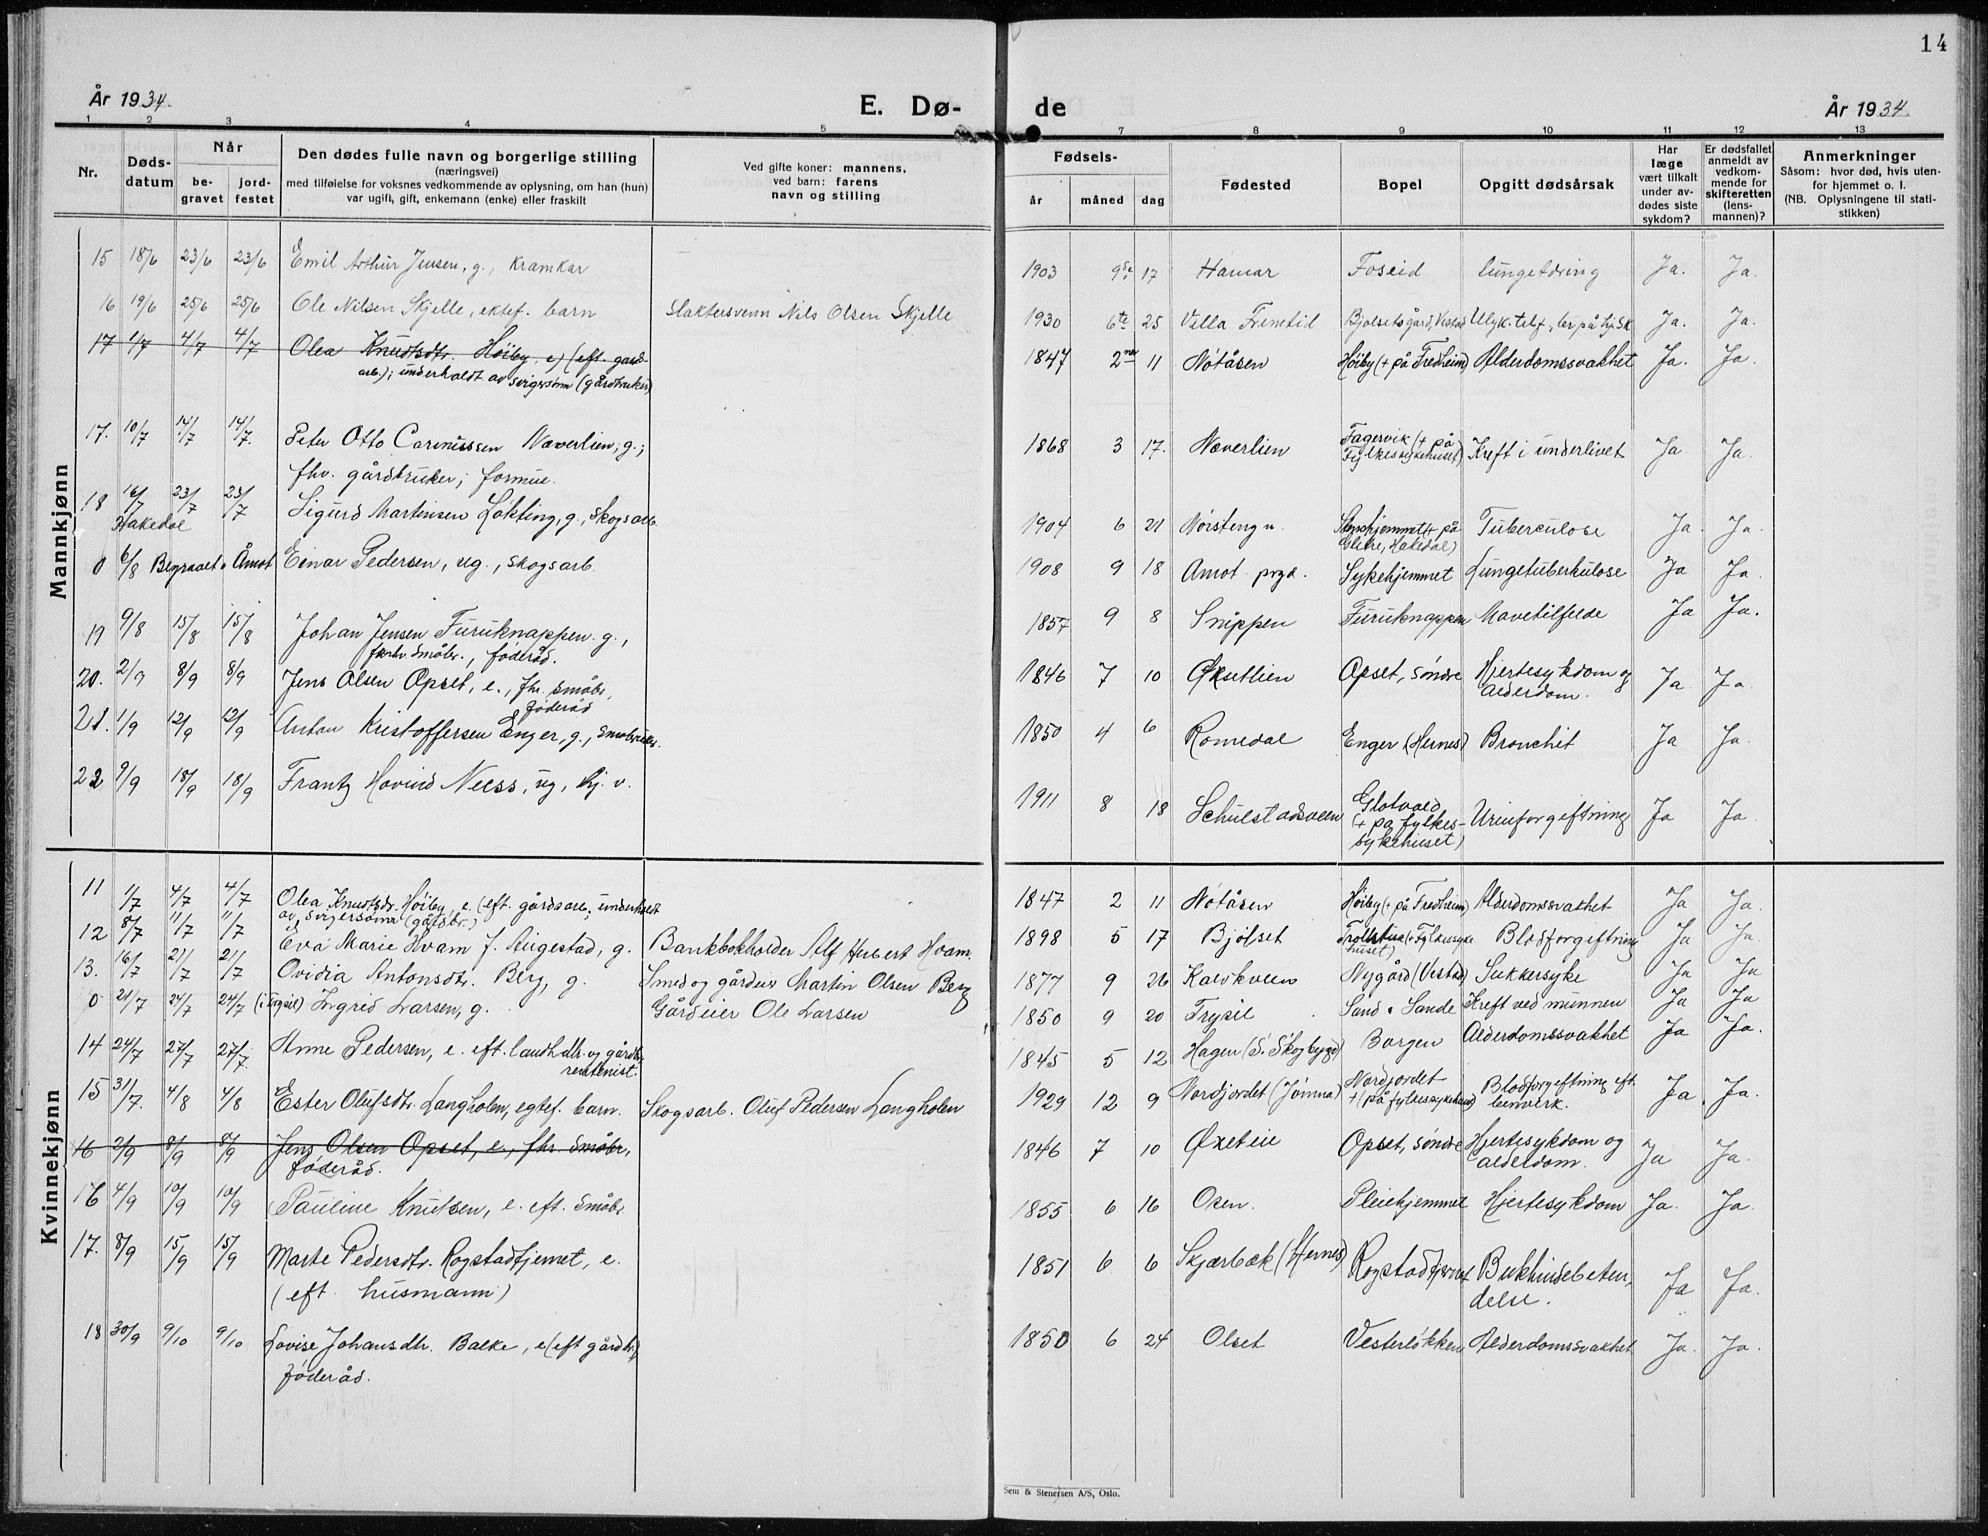 14
År 1934. E. Dø- de År 1934.
1 2 3 4 5 7 8 9 10 11 12 13
Nr.
Døds-
datum
Når
be-
gravet
jord-
festet
Den dødes fulle navn og borgerlige stilling
(næringsvei)
med tilføielse for voksnes vedkommende av oplysning, om han (hun)
var ugift, gift, enkemann (enke) eller fraskilt
Ved gifte koner: mannens,
ved barn: farens
navn og stilling
Fødsels-
år måned dag
Fødested
Bopel
Opgitt dødsårsak
Har
læge
vært tilkalt
under av-
dødes siste
sykdom?
Er dødsfallet
anmeldt av
vedkom-
mende for
skifteretten
(lens-
mannen)?
Anmerkninger
Såsom: hvor død, hvis uten-
for hjemmet o. l.
(NB. Oplysningene til stati-
stikken)
Mannkjønn
15 18/6 23/6 23/6 Emil Arthur Jensen, g., kramkar 1903 9de 17 Hamar Foseid lungetæring Ja. Ja.
16 19/6 25/6 25/6 Ole Nilsen Skjelle, ektef. barn Slaktersvenn Nils Olsen Skjelle 1930 6te 25 Villa Fremtid Bjølsetsgård, Vestad Ulyk.telf., Ja. Ja.
17 1/7 4/7 4/7 Olea Knudtsdtr. Høiby, e) (eft. gard-
arb.); underholdt av svigersønn (gårdbruker) 1847 2net 11 Nøtåsen Høiby (+ på Fredheim) Alderdomssvakhet Ja. Ja.
17. 10/7 14/7 14/7. Peter Otto Carinussen Næverlien, g.;
fhv. gårdbruker; formue. 1868 3 17. Næverlien Fagervik (+ på
Fylkessykehuset) Kreft i underlivet Ja Ja.
18 16/7 23/7 23/7 Sigurd Martinsen Løkting, g., skogsarb.
Hakedal 1904 6 21 Sykehjemmet (+ på
Glitre, Hakedal) Tuberculose Ja. Ja.
0 6/8 Begravet i Åmot Einar Pedersen, ug., skogsarb. 1908 9 18 Åmot prgd. Sykehjemmet Lungetuberkulose Ja Ja.
19 9/8 15/8 15/8 Johan Jensen Furuknappen. g.,
forhv. småbr., føderåd. 1857 9 8 Snippen Furuknappen Mavetilfelde Ja Ja.
20. 2/9 8/9 8/9 Jens Olsen Opset, e., fhv. småbr,
føderåd 1846 7 10 Øksetlien Opset, søndre Hjertesykdom og
alderdom. Ja Ja.
21. 1/9 12/9 12/9 Anton Kristoffersen Enger, g., småbruker. 1850 4 6 Romedal Enger (Hernes) Bronchit Ja Ja.
22 9/9 18/9 18/9 Frantz Hovind Neess, ug, hj. v. 1911 8 18 Schulstadsveen Glotvold
(+ på fylkes-
sykehuset) Urinforgiftning Ja Ja.
Kvinnekjønn
11 1/7 4/7 4/7 Olea Knutsdr. Høiby, e. (eft. gårdsarb; underholdt
av svigersønn (gårdbr.) 1847 2 11 Nøtåsen Høiby (+ på Fredheim) Alderdomssvakhet Ja Ja.
12 8/7 11/7 11/7 Eva Marie Hvam f. Augestad, g. Bankbokholder Alf Hubert Hvam. 1898 5 17 Bjølset (+ Fylkessyke
huset) Blodforgiftning Ja Ja.
13. 16/7 21/7 21/7 Ovidia Antonsdtr. Berg, g. Smed og gårdeier Martin Olsen Berg 1877 9 26 Kalvkveen Nygård (Vestad) Sukkersyke Ja Ja
0 21/7 24/7 24/7 (i Trysil) Ingrid Larsen, g. Gårdeier Ole Larsen 1850 9 20 Trysil Sand i Sande Kreft ved munnen Ja Ja
14 24/7 27/7 27/7 Anne Pedersen, e. eft. landhdlr. og gårdbr.
rentenist. 1845 5 12 Hagen (S. Skogbygd) Borgen Alderdomssvakhet Ja Ja.
15 31/7. 4/8 4/8 Ester Olufsdtr. Langholen, egtef. barn. Skogsarb. Oluf Pedersen Langholen 1929 12 9 Nordjordet (Jømna) Nordjordet
+ (på fylkessykehuset) Blodforgiftning eft.
benverk. Ja. Ja.
16 2/9 8/9 8/9 Jens Olsen Opset, e., fhv. småbr,
føderåd. 1846 7 10 Øxetlie Opset, søndre Hjertesykdom og
alderdom. Ja Ja.
16 4/9 10/9 10/9 Pauline Knutsen, e. eft. småbr. 1855 6 16 Osen. Pleiehjemmet Hjertesykdom Ja. Ja.
17. 8/9 15/9 15/9 Marte Pedersdtr. Rogstadtjernet, e.
(eft husmann) 1851 6 6 Skjærbæk (Hernes) Rogstadtjernet Bukhindebeten-
delse. Ja Ja.
18 30/9 9/10 9/10 Lovise Johansdtr. Balke, e (eft gårdbr.)
føderåd. 1850 6 24 Olset Vesterløkken Alderdomssvakhet Ja. Ja.
Sem & Stenersen A/S, Oslo.